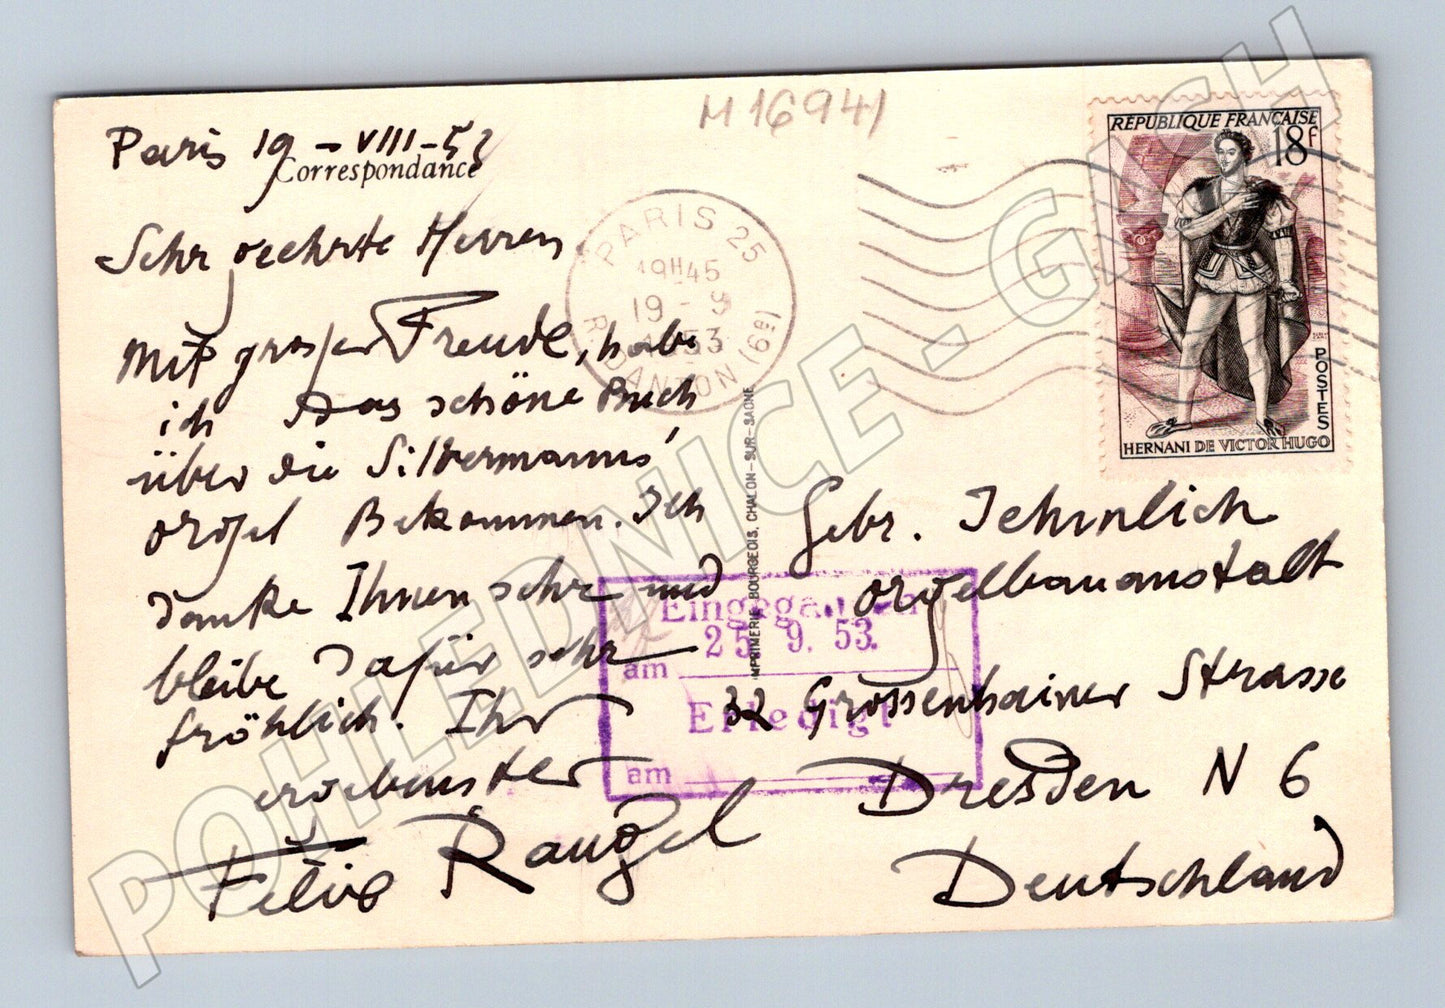 M 16941
Paris 19 - VIII - 53
Correspondance
Sehr geehrte Herren
Mit großer Freude, habe
ich das schöne Buch
über die Silbermanns
orgel Bekommen. Ich
danke Ihnen sehr und
bleibe dafür sehr
fröhlich. Ihr
ergebenster
Felix Raugel
PARIS 25
19H45
19 - 9
1953
R. DANTON (6e)
IMPRIMERIE BOURGEOIS, CHALON-SUR-SAONE
RÉPUBLIQUE FRANÇAISE
18f
POSTES
HERNANI DE VICTOR HUGO
Gebr. Jehmlich
orgelbauanstalt
32 Grossenhainer Strasse
Dresden N 6
Deutschland
Eingegangen
am 25. 9. 53.
Erledigt
am
POHLEDNICE - GMCH